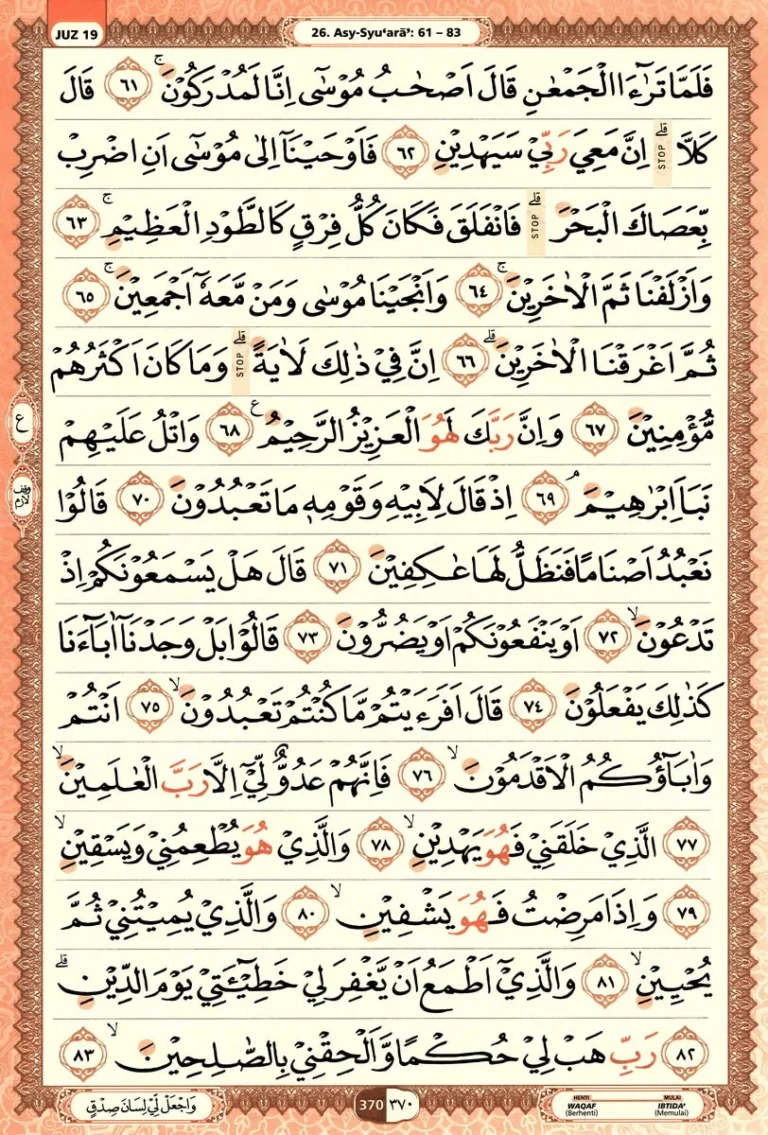 JUZ 19
26. Asy-Syu‘arā’: 61 – 83
فَلَمَّا تَرَٰٓءَا الْجَمْعٰنِ قَالَ اَصْحٰبُ مُوْسٰٓى اِنَّا لَمُدْرَكُوْنَ ۚ ٦١ قَالَ
كَلَّا ۗ STOP اِنَّ مَعِيَ رَبِّيْ سَيَهْدِيْنِ ٦٢ فَاَوْحَيْنَآ اِلٰى مُوْسٰٓى اَنِ اضْرِبْ
بِّعَصَاكَ الْبَحْرَ ۗ STOP فَانْفَلَقَ فَكَانَ كُلُّ فِرْقٍ كَالطَّوْدِ الْعَظِيْمِ ۚ ٦٣
وَاَزْلَفْنَا ثَمَّ الْاٰخَرِيْنَ ۚ ٦٤ وَاَنْجَيْنَا مُوْسٰى وَمَنْ مَّعَهٗٓ اَجْمَعِيْنَ ۚ ٦٥
ثُمَّ اَغْرَقْنَا الْاٰخَرِيْنَ ۗ ٦٦ اِنَّ فِيْ ذٰلِكَ لَاٰيَةً ۗ STOP وَمَا كَانَ اَكْثَرُهُمْ
مُّؤْمِنِيْنَ ٦٧ وَاِنَّ رَبَّكَ لَهُوَ الْعَزِيْزُ الرَّحِيْمُ ࣖ ٦٨ وَاتْلُ عَلَيْهِمْ
نَبَاَ اِبْرٰهِيْمَ ۘ ٦٩ اِذْ قَالَ لِاَبِيْهِ وَقَوْمِهٖ مَا تَعْبُدُوْنَ ٧٠ قَالُوْا
نَعْبُدُ اَصْنَامًا فَنَظَلُّ لَهَا عٰكِفِيْنَ ٧١ قَالَ هَلْ يَسْمَعُوْنَكُمْ اِذْ
تَدْعُوْنَ ۙ ٧٢ اَوْ يَنْفَعُوْنَكُمْ اَوْ يَضُرُّوْنَ ٧٣ قَالُوْا بَلْ وَجَدْنَآ اٰبَاۤءَنَا
كَذٰلِكَ يَفْعَلُوْنَ ٧٤ قَالَ اَفَرَءَيْتُمْ مَّا كُنْتُمْ تَعْبُدُوْنَ ۙ ٧٥ اَنْتُمْ
وَاٰبَاۤؤُكُمُ الْاَقْدَمُوْنَ ۙ ٧٦ فَاِنَّهُمْ عَدُوٌّ لِّيْٓ اِلَّا رَبَّ الْعٰلَمِيْنَ ۙ
٧٧ الَّذِيْ خَلَقَنِيْ فَهُوَ يَهْدِيْنِ ۙ ٧٨ وَالَّذِيْ هُوَ يُطْعِمُنِيْ وَيَسْقِيْنِ ۙ
٧٩ وَاِذَا مَرِضْتُ فَهُوَ يَشْفِيْنِ ۙ ٨٠ وَالَّذِيْ يُمِيْتُنِيْ ثُمَّ
يُحْيِيْنِ ۙ ٨١ وَالَّذِيْٓ اَطْمَعُ اَنْ يَّغْفِرَ لِيْ خَطِيْۤـَٔتِيْ يَوْمَ الدِّيْنِ ۗ
٨٢ رَبِّ هَبْ لِيْ حُكْمًا وَّاَلْحِقْنِيْ بِالصّٰلِحِيْنَ ۙ ٨٣
ع
وَاجْعَلْ لِّيْ لِسَانَ صِدْقٍ
370 ٣٧٠
HENTI MULAI
WAQAF IBTIDA'
(Berhenti) (Memulai)